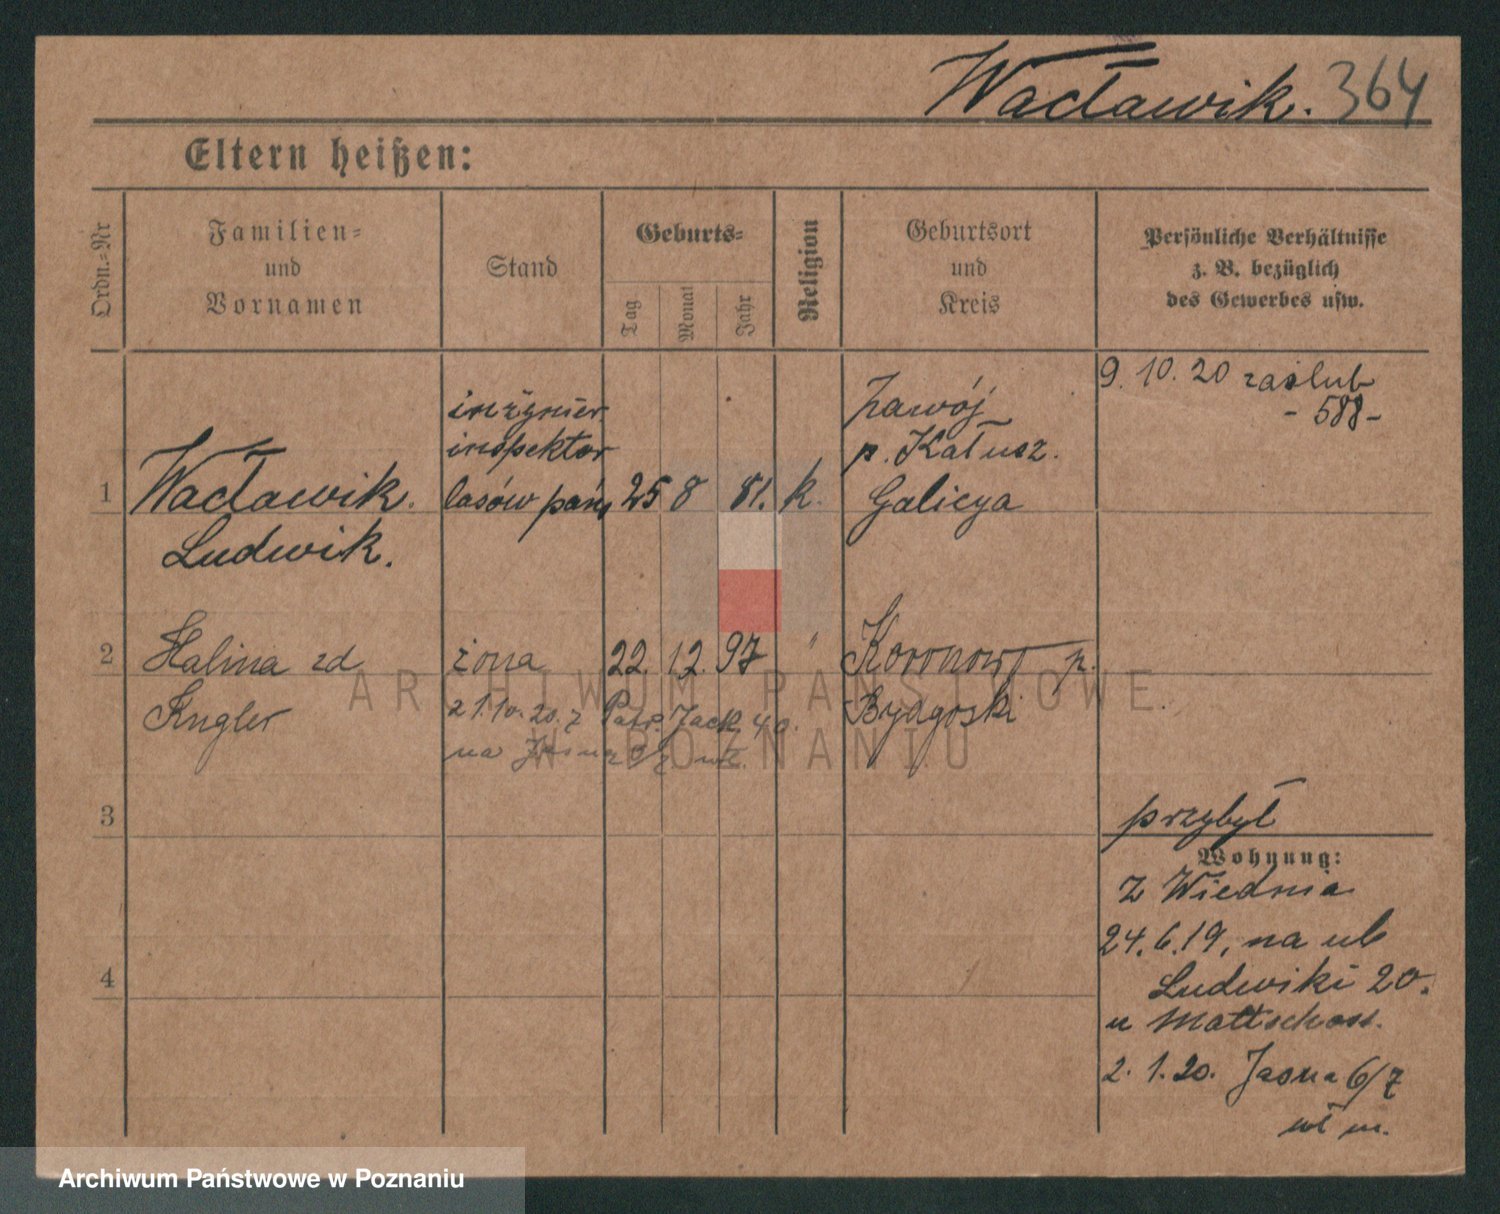 Wacławik. 364
Eltern heißen:
Ordn.-Nr
Familien-
und
Vornamen
Stand
Geburts-
Tag
Monat
Jahr
Religion
Geburtsort
und
Kreis
Persönliche Verhältnisse
z. B. bezüglich
des Gewerbes usw.
9. 10. 20 zaślub
- 588 -
1
Wacławik.
Ludwik.
inżynier
inspektor
lasów pań
25 8 81. k.
Zawój
p. Kałusz.
Galicya
2
Halina zd
żona
22. 12. 97 "
Koronowo p.
Bydgoski
21.10.20. z Patr. Jack. 40.
na
3
przybył
Wohnung:
z Wiednia
24.6.19, na ul
Ludwiki 20.
u Mattschoss.
4
2. 1. 20. Jasna 6/7
wł m.
ARCHIWUM PAŃSTWOWE
W POZNANIU
Archiwum Państwowe w Poznaniu